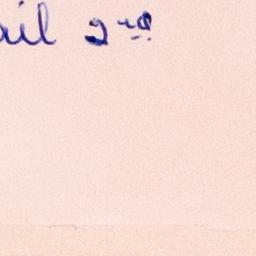 ail 2nd